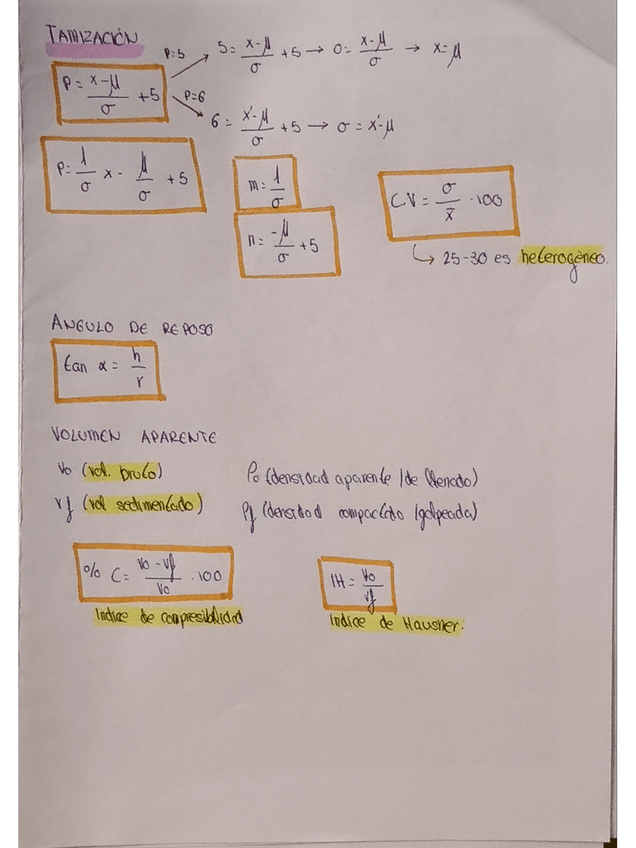 TAMIZACIÓN.
P=5 5 = (x-μ)/σ + 5 → 0 = (x-μ)/σ → x=μ
P = (x-μ)/σ + 5
P=6 6 = (x'-μ)/σ + 5 → σ = x'-μ
P = 1/σ x - μ/σ + 5
m = 1/σ
n = -μ/σ + 5
CV = σ/x̄ · 100
↳ 25-30 es heterogéneo.
ANGULO DE REPOSO
tan α = h/r
VOLUMEN APARENTE
Vo (vol. bruto) Po (densidad aparente / de llenado)
Vf (vol sedimentado) Pf (densidad compactada / golpeada)
% C = (Vo - Vf)/Vo · 100
Indice de compresibilidad
IH = Vo/Vf
Indice de Hausner.